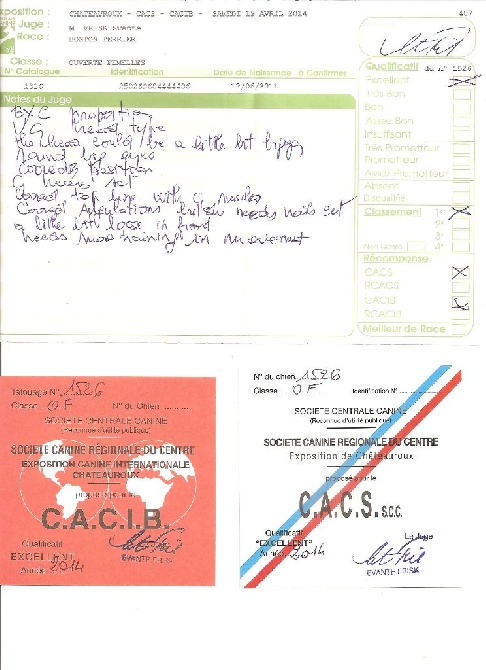 Exposition : CHATEAUROUX - CACS - CACIB - SAMEDI 12 AVRIL 2014
407
Juge :
Race : BOSTON TERRIER
Classe : OUVERTE FEMELLES
N° Catalogue Identification Date de Naissance à Confirmer
Qualificatif du n° 1526
Notes du Juge
EXC proportion
VG head type
the head could be a little bit bigger
round eyes
correct top line with
Correct Angulations but needs nails cut
a little bit loose in front
needs more training in movement
Excellent
Très Bon
Bon
Assez Bon
Insuffisant
Très Prometteur
Prometteur
Assez Prometteur
Absent
Disqualifié
Classement 1er
2e
3e
Non Classé 4e
Récompense
CACS
RCACS
CACIB
RCACIB
Meilleur de Race
Tatouage N° 1526
Classe OF N° du Chien
SOCIETE CENTRALE CANINE
(Reconnue d'utilité publique)
SOCIETE CANINE REGIONALE DU CENTRE
EXPOSITION CANINE INTERNATIONALE
CHATEAUROUX
proposé pour le
C.A.C.I.B.
Qualificatif
EXCELLENT
Année 2014
N° du chien 1526
Classe OF Identification N°
SOCIETE CENTRALE CANINE
(Reconnue d'utilité publique)
SOCIETE CANINE REGIONALE DU CENTRE
Exposition de Châteauroux
proposé pour le
C.A.C.S. s.c.c.
Qualificatif Le Juge
"EXCELLENT"
Année 2014